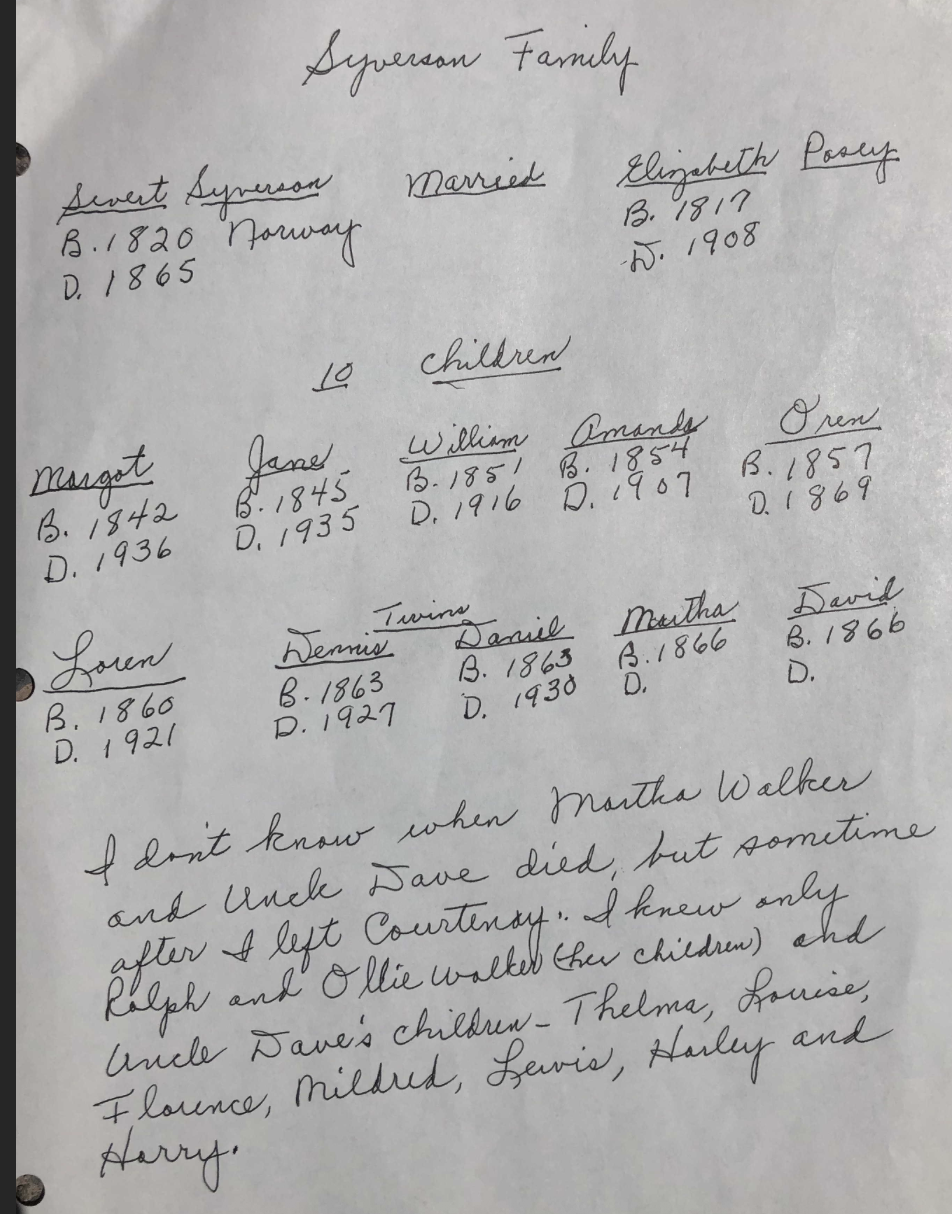 Syverson Family
Sivert Syverson Married Elizabeth Posey
B. 1820 Norway B. 1817
D. 1865 D. 1908
10 Children
Margot Jane William Amanda Oren
B. 1842 B. 1845 B. 1851 B. 1854 B. 1857
D. 1936 D. 1935 D. 1916 D. 1907 D. 1869
Twins
Loren Dennis Daniel Martha David
B. 1860 B. 1863 B. 1863 B. 1866 B. 1866
D. 1921 D. 1927 D. 1930 D. D.
I don't know when Martha Walker
and Uncle Dave died, but sometime
after I left Courtenay. I knew only
Ralph and Ollie Walker (her children) and
Uncle Dave's children - Thelma, Louise,
Florence, Mildred, Lewis, Harley and
Harry.